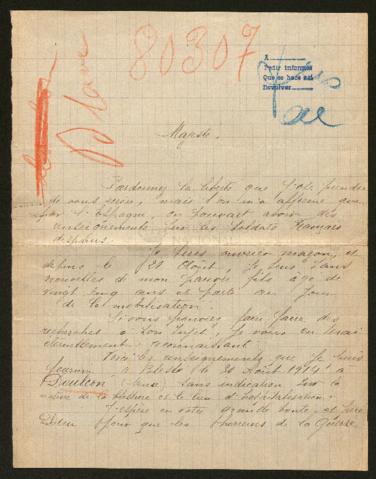 80307
Blave
A
Pedir informes
Que se hace así
Devolver
Majesté
Pardonnez la liberté que j'ose prendre
de vous écrire, mais l'on m'a affirmé que
par l'Espagne, on pouvait avoir des
renseignements sur les soldats Français
disparus.
Je suis ouvrier maçon, et
depuis le 28 Août, je suis sans
nouvelles de mon pauvre fils âgé de
vingt cinq ans et parti au jour
de la mobilisation.
Si vous pouvez faire faire des
recherches à son sujet, je vous en serai
éternellement reconnaissant
Voici les renseignements que je puis
fournir Blessé le 28 Août 1914 à
Doulcon (Meuse) sans indication sur la
nature de la blessure et le lieu d'hospitalisation.
J'espère en votre grande bonté, et prie
Dieu pour que les horreurs de la Guerre